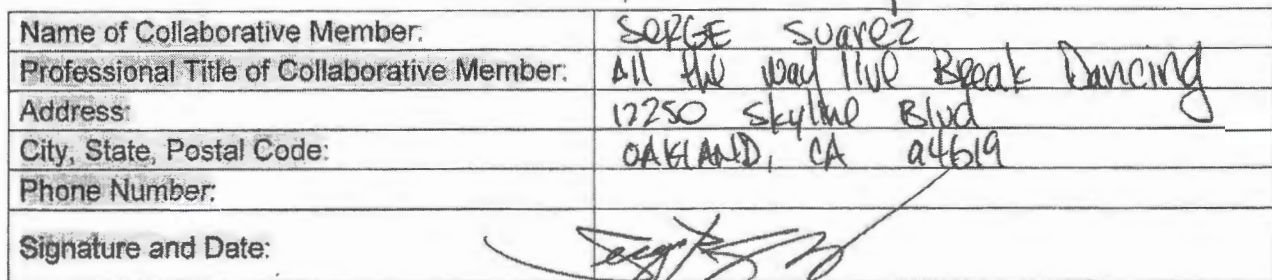 Name of Collaborative Member: SERGE Suarez
Professional Title of Collaborative Member: All the way live Break Dancing
Address: 12250 Skyline Blvd
City, State, Postal Code: OAKLAND, CA 94619
Phone Number:
Signature and Date: